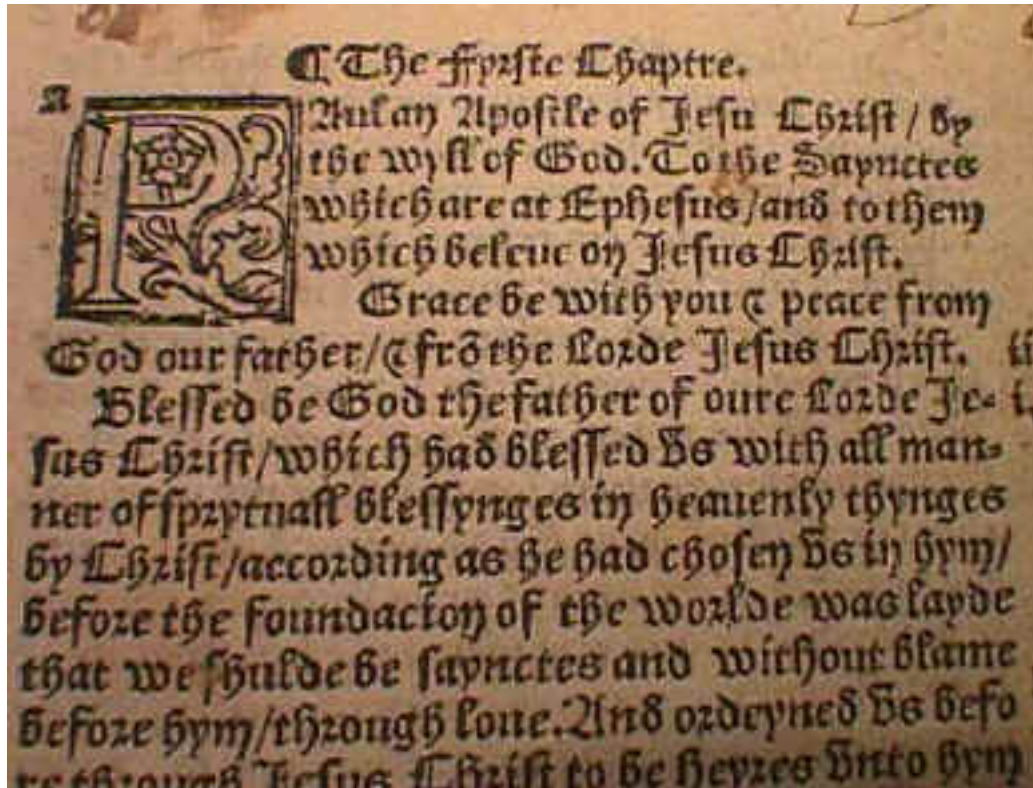 ¶ The fyrste Chaptre.
A
PAul an Apostle of Jesu Christ / by
the wyll of God. To the Saynctes
which are at Ephesus / and to them
which beleue on Jesus Christ.
Grace be with you & peace from
God our father / & frõ the Lorde Jesus Christ.
Blessed be God the father of oure Lorde Je-
sus Christ / which had blessed vs with all man-
ner of sprytuall blessynges in heauenly thynges
by Christ / according as he had chosen vs in hym /
before the foundacion of the worlde was layde
that we shulde be saynctes and without blame
before hym / through loue. And ordeyned vs befo
re through Jesus Christ to be heyres vnto hym